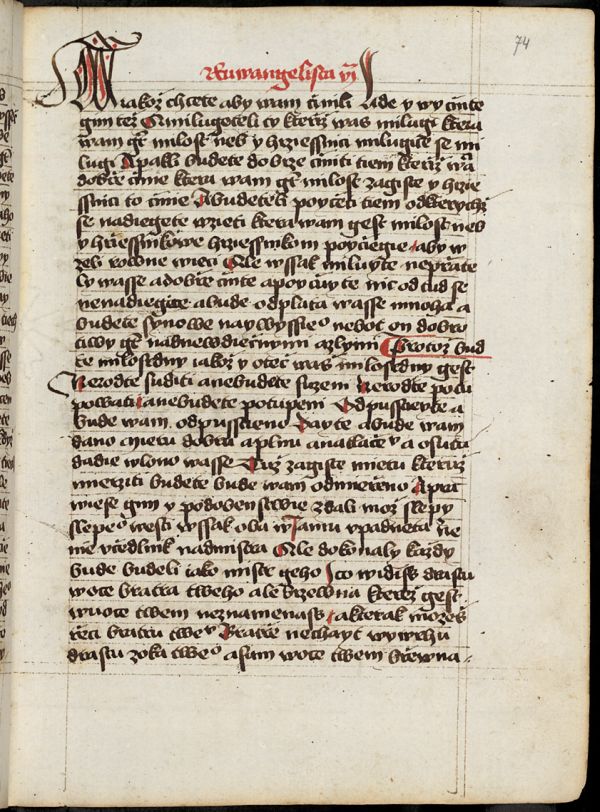 74
Ruwangelista vi
A iakoz chcete aby wam cinili lide y wy cinte
gim tez A milugeteli ty kteriz was milugi ktera
wam gest milost neb y hrziessnici milugiice se mi
lugi A pakli budete dobrze ciniti tiem kteriz wam
dobrze cinie ktera wam gest milost zagiste y hrzie
ssnici to cinie A budeteli poyceti tiem od kterychz
se nadiegete wzieti ktera wam gest milost neb
y hrziessnikowe hrziessnikom poyciegie aby w
zeli rowne wieci Ale wssak miluyte neprzate
ly wasse a dobrze cinte a poycuyte nic od tud se
nenadiegice a bude odplata wasse mnoha a
budete synowe naywyssieo neboť on dobro
tiwy gest nad newdiecnymi a zlymi Protoz bud
te milosrdny iakoz y otec was milosrdny gest
Nerodte suditi a nebudete suzeni Nerodte potu
powati a nebudete potupeni Odpusstieyte a
bude wam odpusstieno Dayte a bude wam
dano mieru dobru a plnu a natlaczenu a osutu
dadie w lono wasse Tuz zagiste mieru kteruz
mierziti budete bude wam odmierzeno A pra
wiese gim y podobenstwie zdali moz slepy
slepeo westi wssak oba w iamu wpadneta nie
nie vcedlnik nad mistra Ale dokonaly kazdy
bude budeli iako mistr geho I co widiss drastu
w oce bratra tweho ale brzewna kterez gest
w uoce twem neznamenass a kterak mozes
rzeci bratru twemu Bratrze nechayt wywrhu
drastu z oka tweo a sam w oce twem brzewna